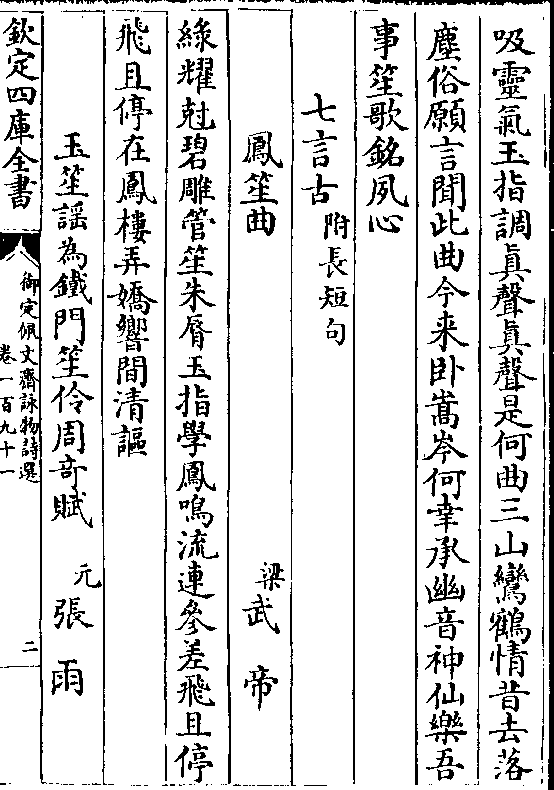 吸靈氣玉指調真聲真聲是何曲三山鸞鶴情昔去落
塵俗願言聞此曲今来卧嵩岑何幸承幽音神仙樂吾
事笙歌銘夙心
七言古附長短句
鳳笙曲 梁武帝
綠耀尅碧雕管笙朱脣玉指學鳳鳴流連參差飛且停
飛且停在鳳樓弄嬌響間清謳
玉笙謡為鐵門笙伶周竒賦 元張雨
欽定四庫全書
御定佩文齋詠物詩選
卷一百九十一
二